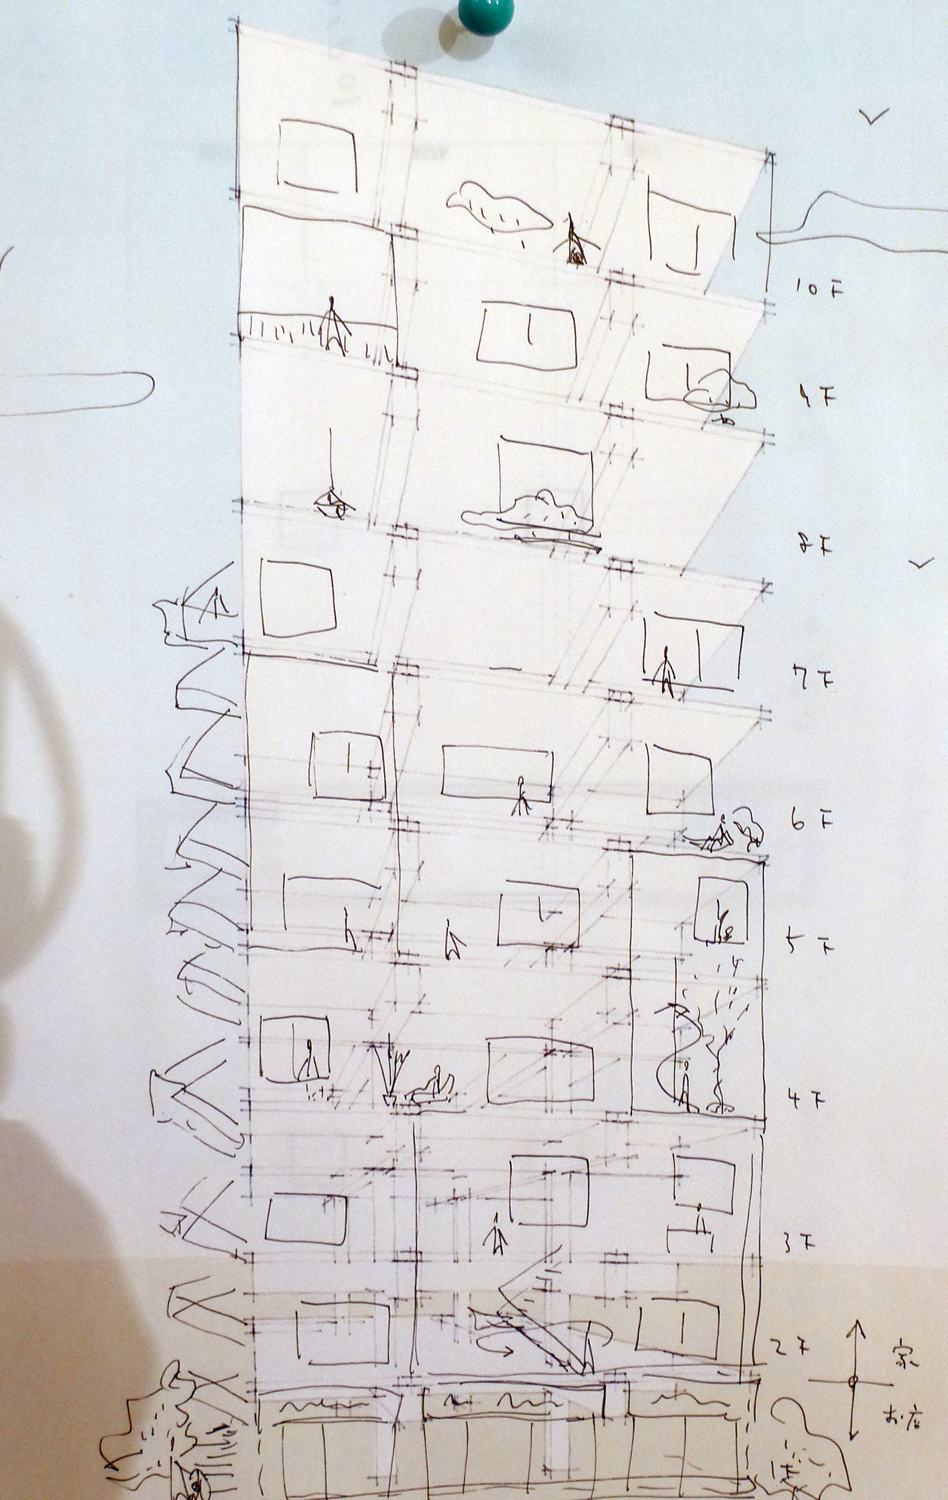 10F
9F
8F
7F
6F
5F
4F
3F
2F
家
お店
1F